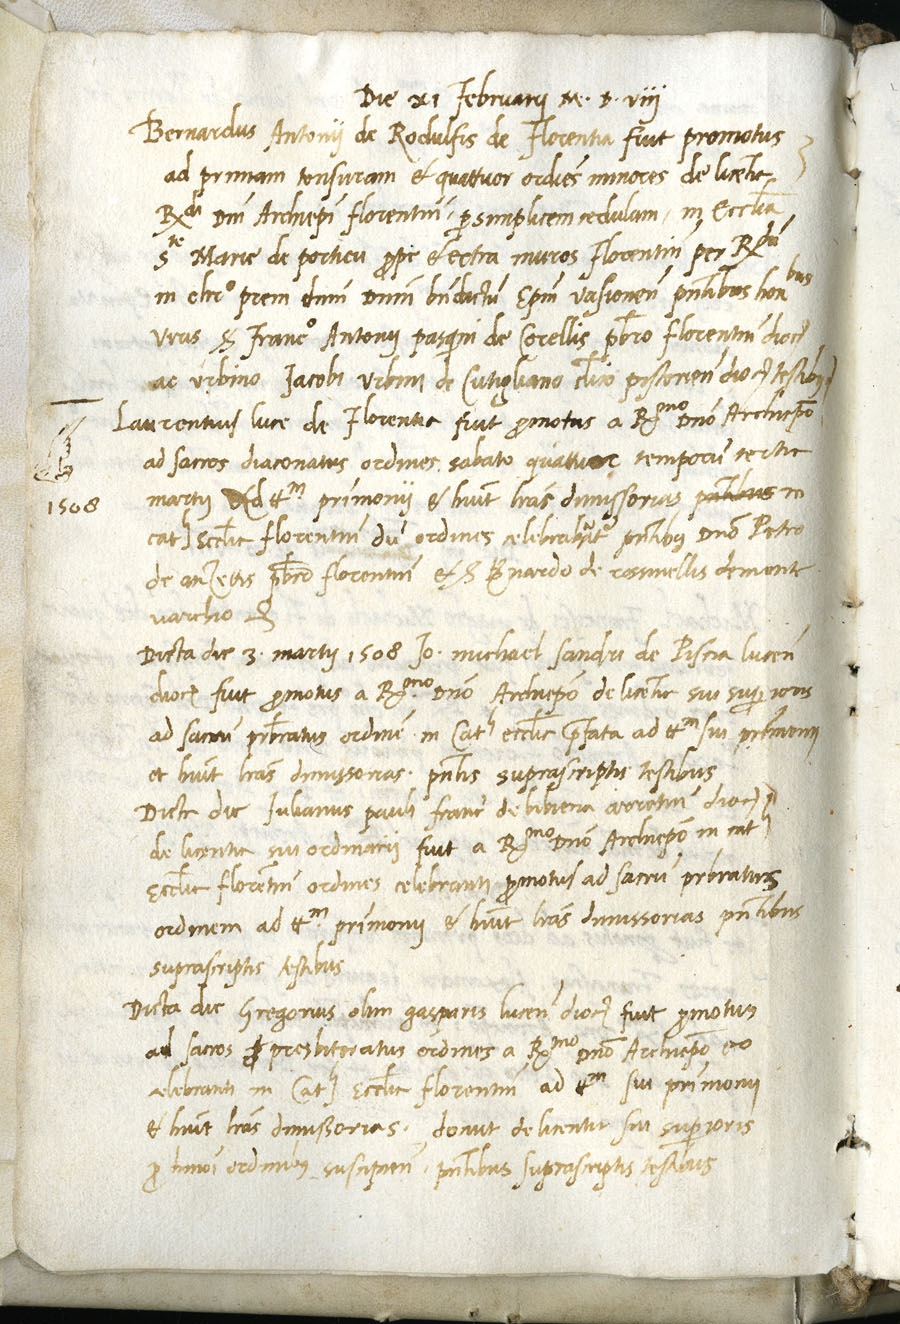 Die xi Februarij M. D. viij
Bernardus Antonij de Rodulfis de Florentia fuit promotus
ad primam tonsuram et quattuor ordies minores de licetie
Rmi Dni Archiepi florentini, p simplicem cedulam, in Ecclia
Ste Marie de porticu prope et extra muros Florentin per Rdu
in chro prem dnm Dnm bndictu Epm vasionen pntibus hon bus
vris S Franco Antonij pasquini de Corellis pbro florentin dioc
ac urbino Jacobi urbini de Cutigliano clico pistorien dioc testibus
Laurentius luce de Florentie fuit promotus a Rmo Dno Archiepo
ad sacros diaconatus ordines sabato quattuor temporu tertie
1508
martij ad ttm primonij et huit lras dimissorias pntibus in
cath Ecclie florentin du ordines celebrabatr pntibus Dno Petro
de anzettis pbro florentin et S Bnardo de rossinellis de monte
varchio
Dicta die 3. martij 1508 Jo. michael sandri de Piscia lucen
dioc fuit promotus a Rmo Dno Archiepo de licetie sui superioris
ad sacru prbratus ordine in Cath ecclie pfata ad ttm sui primonij
et huit lras dimissorias. pntis suprascriptis testibus
Dicte die Julianus pauli franc de bibiena arretin dioc
de licentie sui ordinarij fuit a Rmo Dno Archiepo in cath
Ecclie florentin ordines celebranti promotus ad sacru prbratus
ordinem ad ttm primonij et huit lras dimissorias pntibus
suprascriptis testibus
Dicta die Gregorius olim gasparis lucen dioc fuit promotus
ad sacros presbiteratus ordines a Rmo Dno Archiepo
celebranti in Cath Ecclie florentin ad ttm sui primonij
et huit lras dimissorias. de licentie sui superioris
p ordinibus suscipien. pntibus suprascriptis testibus